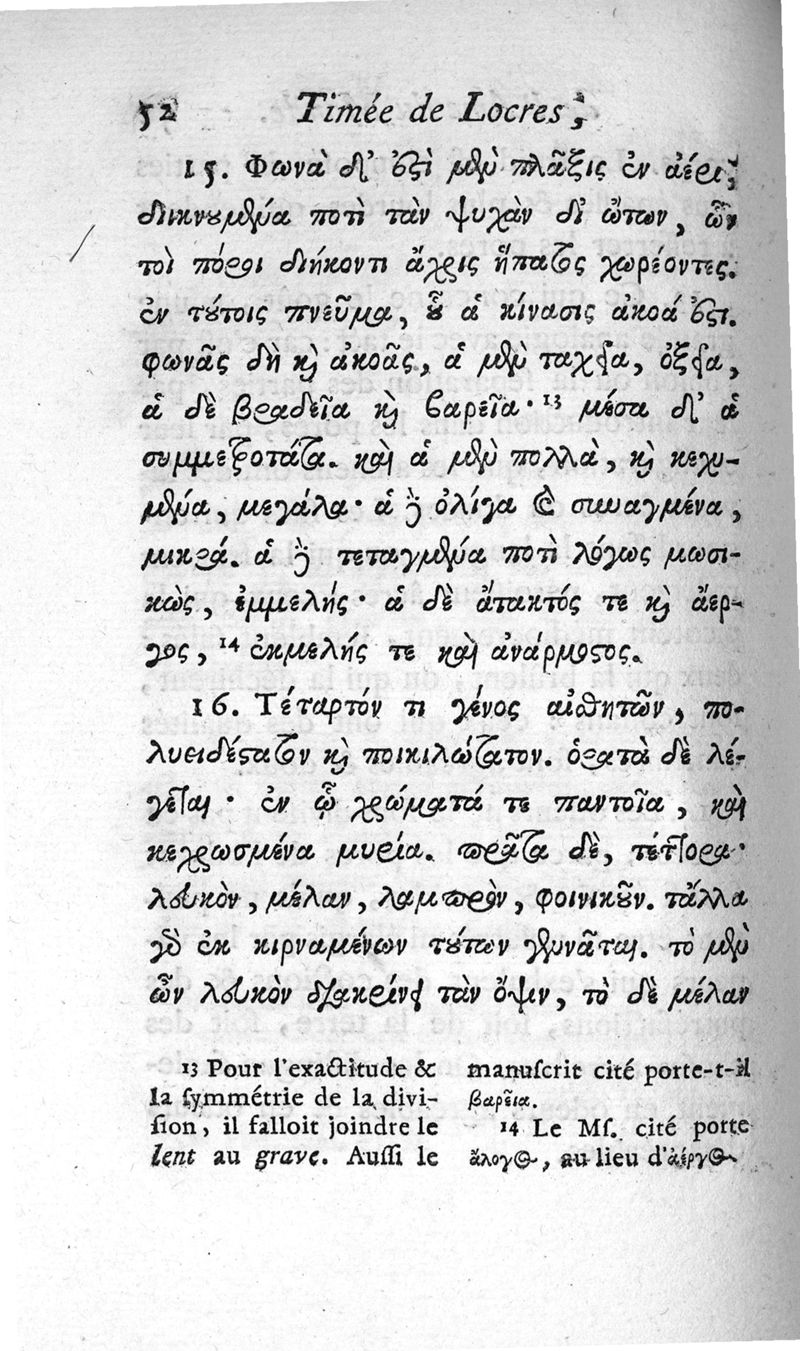 52 Timée de Locres,
15. Φωνὰ δ' ἐστὶ μὲν πλᾶξις ἐν ἀέρι,
διικνουμένα ποτὶ τὰν ψυχὰν δι' ὤτων, ὧν
τοὶ πόροι διήκοντι ἄχρις ἥπατος χωρέοντες.
ἐν τούτοις πνεῦμα, οὗ ἁ κίνασις ἀκοά ἐστι.
φωνᾶς δὴ καὶ ἀκοᾶς, ἁ μὲν ταχεῖα, ὀξεῖα,
ἁ δὲ βραδεῖα καὶ βαρεῖα· 13 μέσα δ' ἁ
συμμετροτάτα. καὶ ἁ μὲν πολλὰ, καὶ κεχυ-
μένα, μεγάλα· ἁ δὲ ὀλίγα καὶ συναγμένα,
μικρά. ἁ δὲ τεταγμένα ποτὶ λόγως μωσι-
κὼς, ἐμμελής· ἁ δὲ ἄτακτός τε καὶ ἄερ-
γος, 14 ἐκμελής τε καὶ ἀνάρμοστος.
16. Τέταρτόν τι γένος αἰσθητῶν, πο-
λυειδέστατον καὶ ποικιλώτατον. ὁρατὰ δὲ λέ-
γεται· ἐν ᾧ χρώματά τε παντοῖα, καὶ
κεχρωσμένα μυρία. πρᾶτα δὲ, τέττορα·
λευκὸν, μέλαν, λαμπρὸν, φοινικοῦν. τἄλλα
γὰρ ἐκ κιρναμένων τούτων γεννᾶται. τὸ μὲν
ὦν λευκὸν διακρίνει τὰν ὄψιν, τὸ δὲ μέλαν
13 Pour l'exactitude &
la symmétrie de la divi-
sion, il falloit joindre le
lent au grave. Aussi le
manuscrit cité porte-t-il
βαρεῖα.
14 Le Ms. cité porte
ἄλογος, au lieu d'ἀέργος